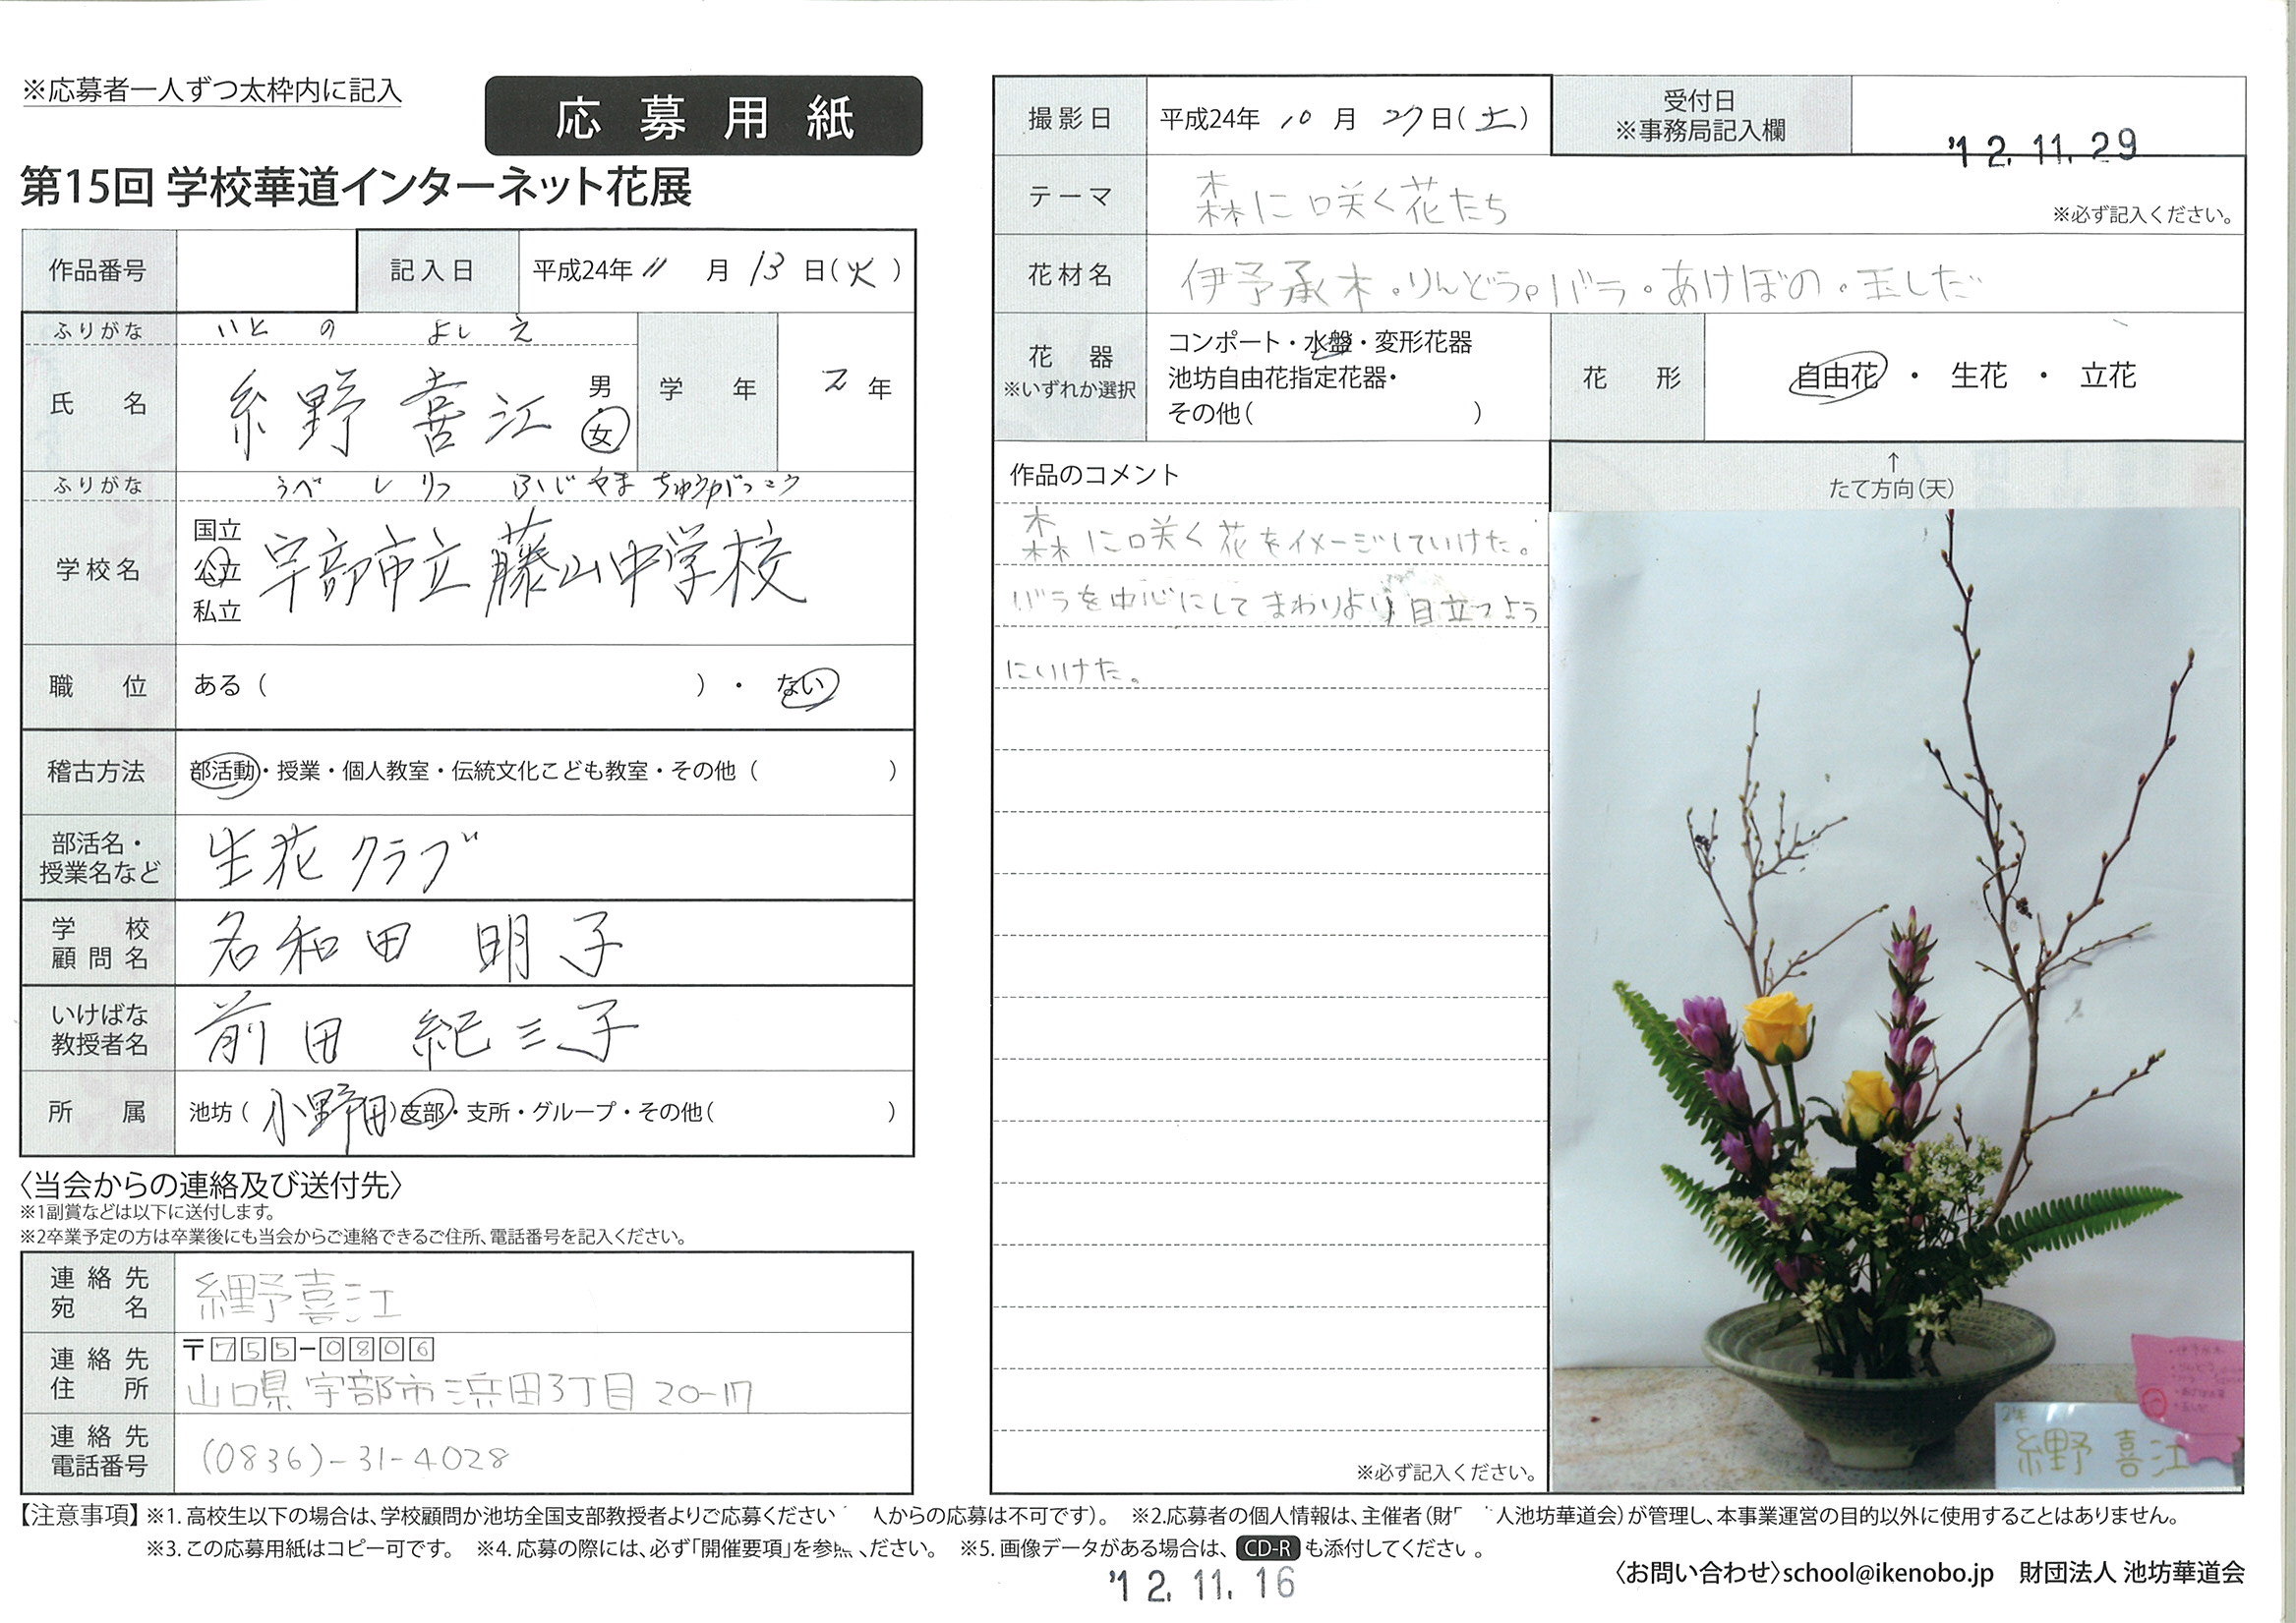 ※応募者一人ずつ太枠内に記入
応募用紙
第15回 学校華道インターネット花展
作品番号
記入日 平成24年 11 月 13 日(火)
ふりがな いと の よしえ
氏名 糸野 喜江 男・女
学年 2年
ふりがな うべ しりつ ふじやま ちゅうがっこう
学校名 国立 公立 私立 宇部市立 藤山中学校
職位 ある( )・ない
稽古方法 部活動・授業・個人教室・伝統文化こども教室・その他( )
部活名・授業名など 生花クラブ
学校顧問名 名和田 明子
いけばな教授者名 前田 紀三子
所属 池坊(小野田)支部・支所・グループ・その他( )
〈当会からの連絡及び送付先〉
※1副賞などは以下に送付します。
※2卒業予定の方は卒業後にも当会からご連絡できるご住所、電話番号を記入ください。
連絡先宛名 糸野喜江
連絡先住所 〒755-0806
山口県宇部市浜田3丁目20-17
連絡先電話番号 (0836)-31-4028
撮影日 平成24年 10 月 27日(土)
受付日 ※事務局記入欄 '12.11.29
テーマ 森に咲く花たち ※必ず記入ください。
花材名 伊予承木・りんどう・バラ・あけぼの・玉しだ
花器 ※いずれか選択
コンポート・水盤・変形花器
池坊自由花指定花器・
その他( )
花形 自由花・生花・立花
作品のコメント
森に咲く花をイメージしていけた。
バラを中心にしてまわりより目立つよう
にいけた。
※必ず記入ください。
↑
たて方向(天)
2年
糸野 喜江
【注意事項】※1.高校生以下の場合は、学校顧問か池坊全国支部教授者よりご応募ください 人からの応募は不可です)。 ※2.応募者の個人情報は、主催者(財 人池坊華道会)が管理し、本事業運営の目的以外に使用することはありません。
※3.この応募用紙はコピー可です。 ※4.応募の際には、必ず「開催要項」を参照ください。 ※5.画像データがある場合は、CD-Rも添付してください。
'12.11.16
〈お問い合わせ〉school@ikenobo.jp 財団法人 池坊華道会